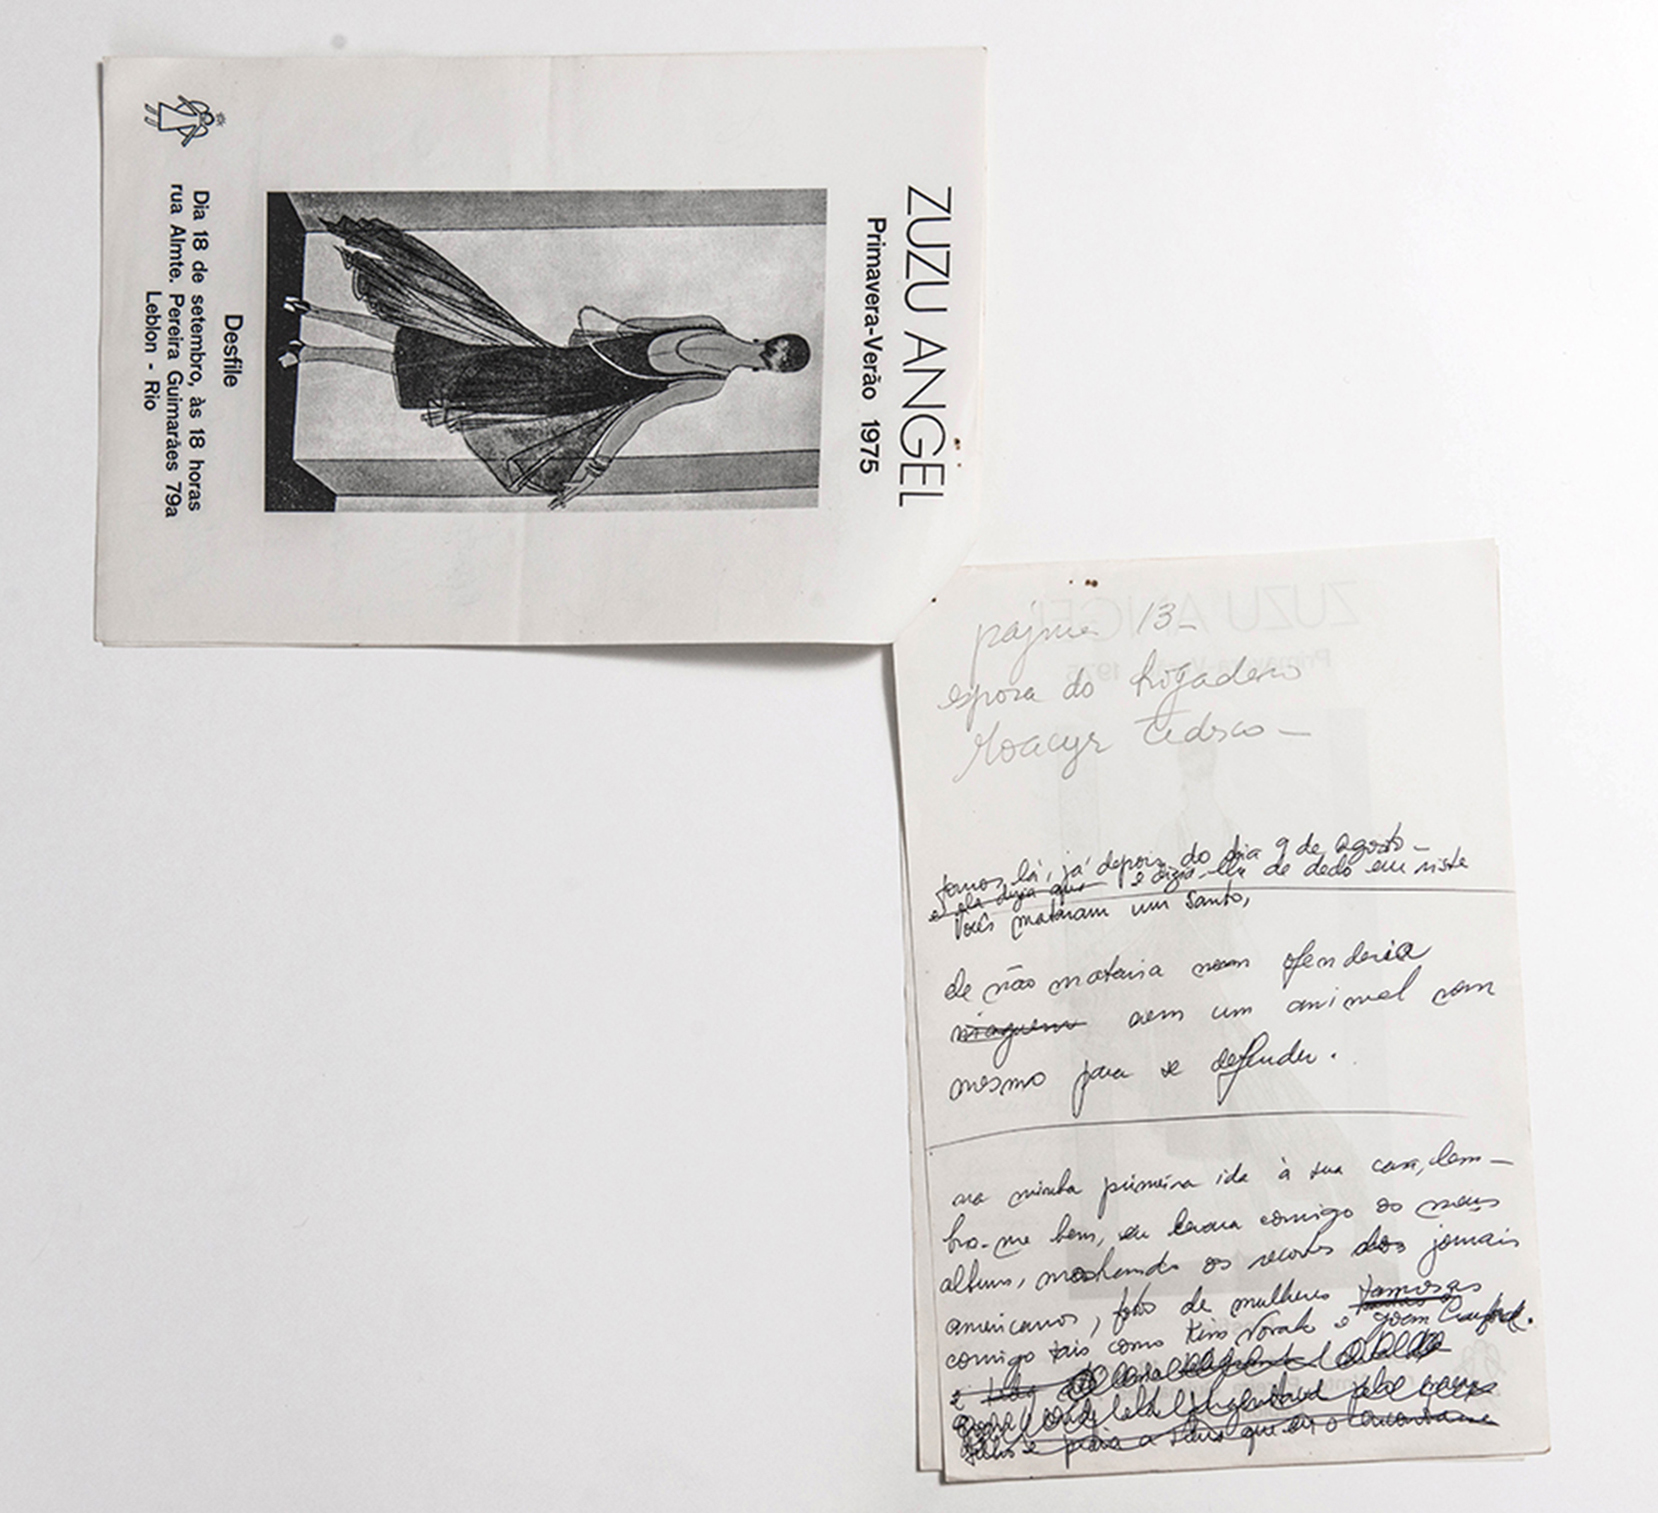 ZUZU ANGEL
Primavera-Verão 1975
Desfile
Dia 18 de setembro, às 18 horas
rua Almte. Pereira Guimarães 79a
Leblon - Rio
página 13-
esposa do brigadeiro
Moacyr Tedesco -
fomos lá, já depois do dia 9 de agosto -
e ela dizia que e dizia-lhe de dedo em riste
Vocês mataram um santo,
ele não mataria nem ofenderia
ninguem nem um animal nem
mesmo para se defender.
na minha primeira ida à sua casa, lem-
bro-me bem, eu levava comigo os meus
albuns, mostrando os recortes dos jornais
americanos, fotos de mulheres famosas
comigo tais como Kim Novak e Joan Crawford.
e
filhos e para a que eu o encontrasse